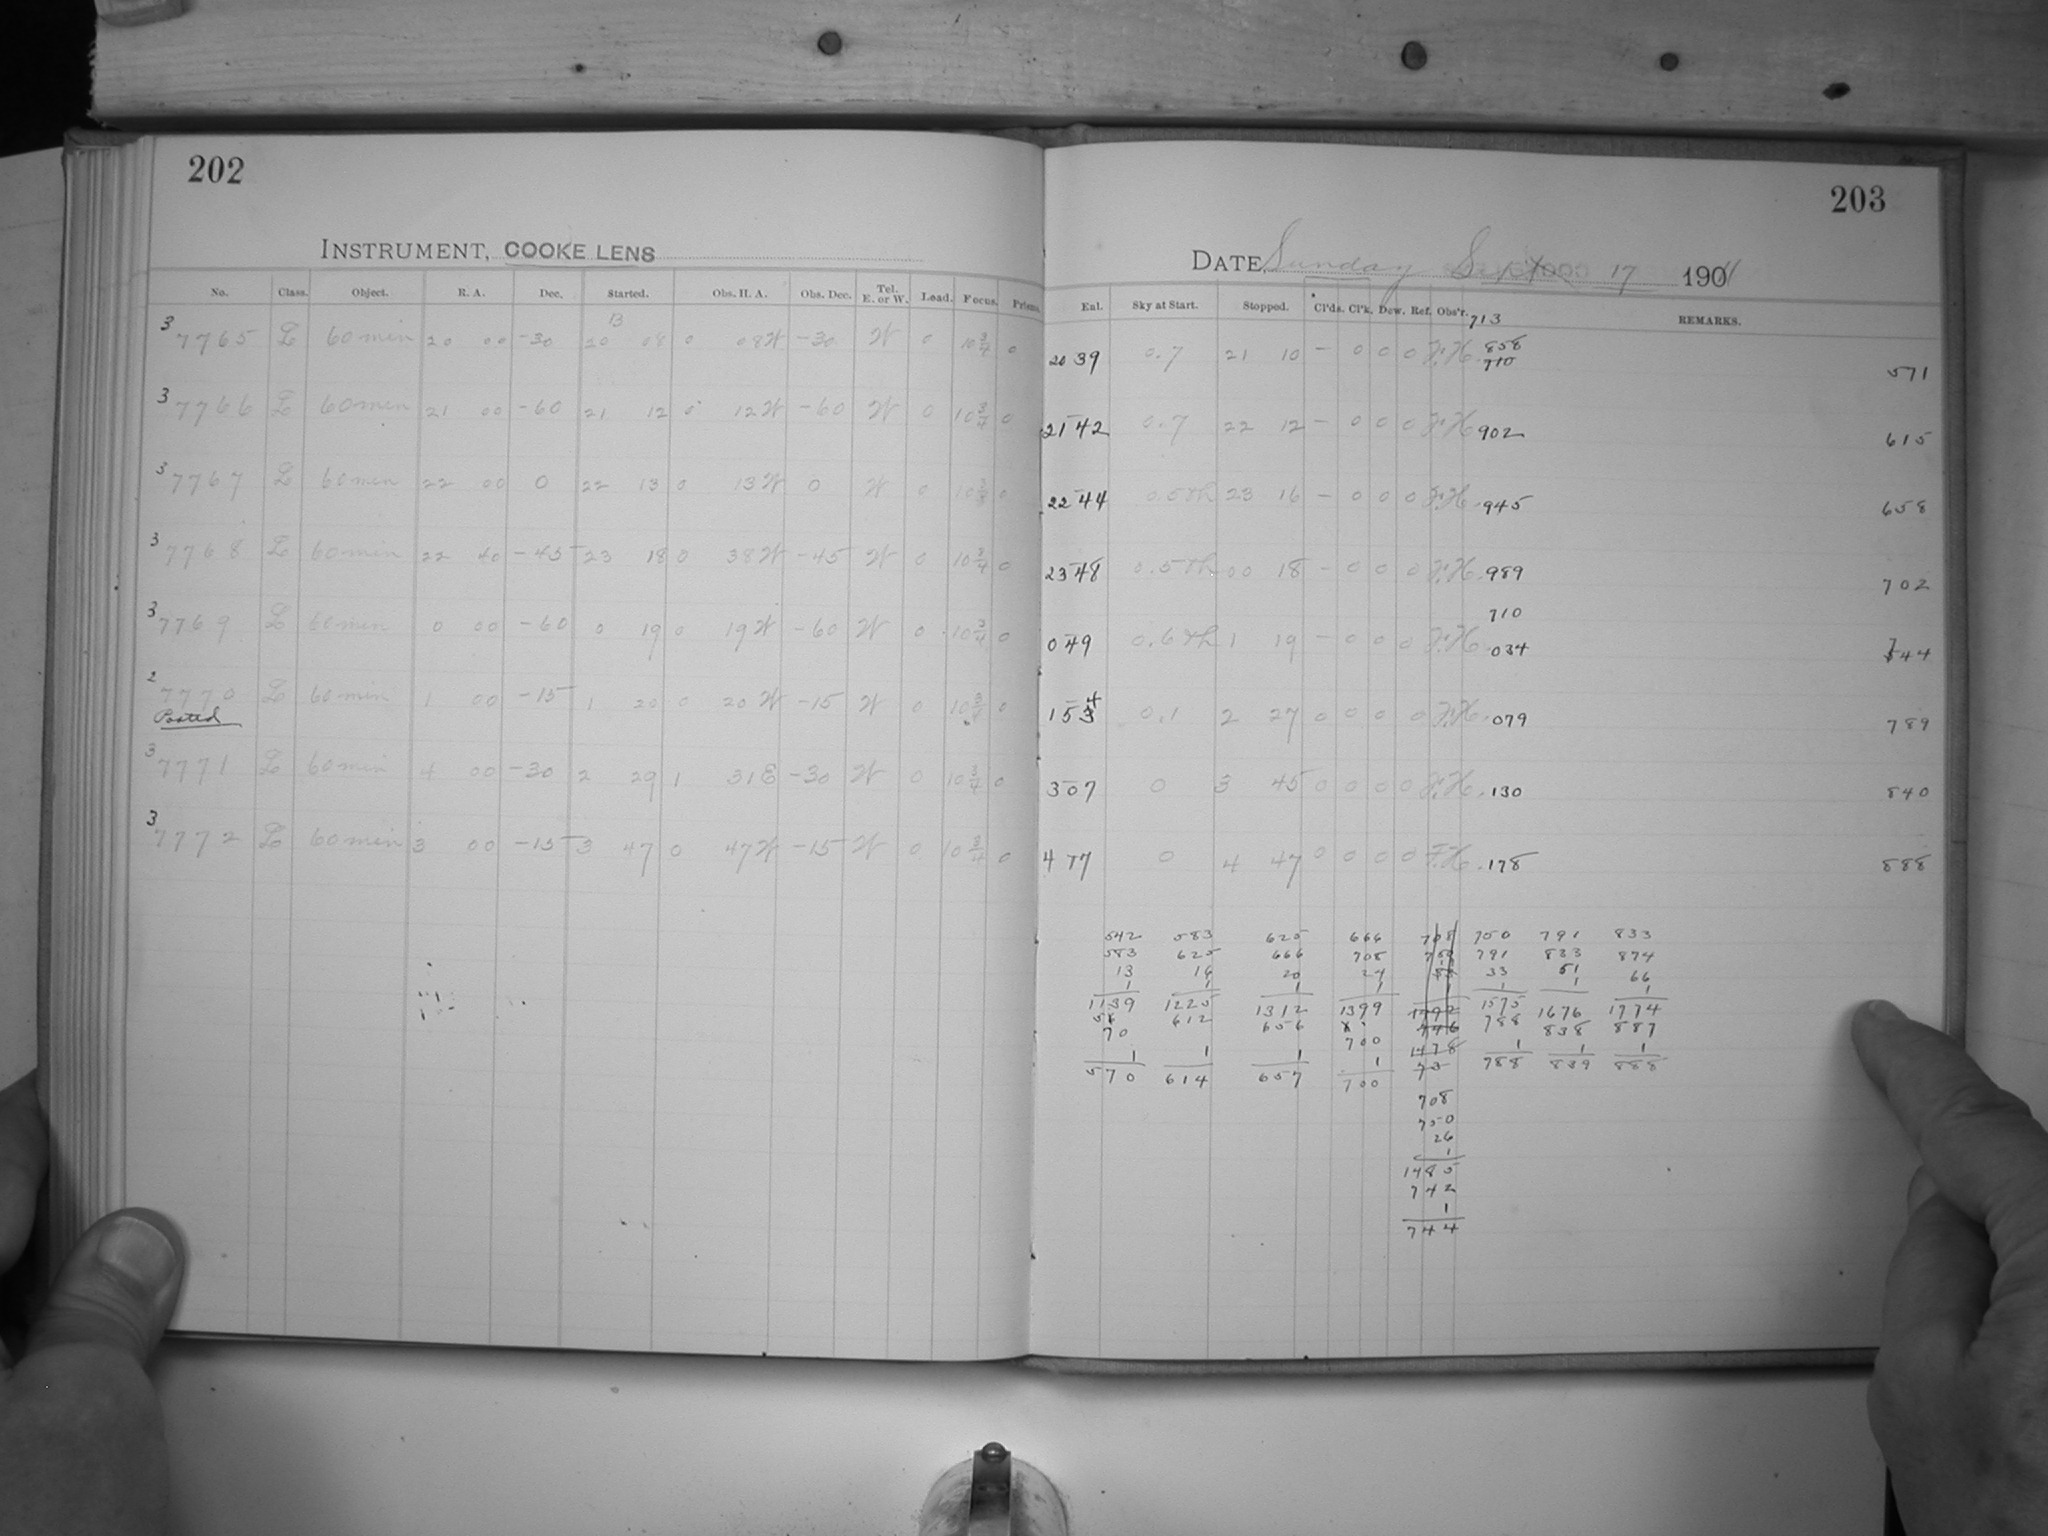 202
INSTRUMENT, COOKE LENS
No. Class. Object. R. A. Dec. Started. Obs. H. A. Obs. Dec. Tel. E. or W. Load. Focus. Prisms.
B
3 7765 L 60 min 20 00 -30 20 08 0 08 W -30 W 0 10 3/4 0
3 7766 L 60 min 21 00 -60 21 12 0 12 W -60 W 0 10 3/4 0
3 7767 L 60 min 22 00 0 22 13 0 13 W 0 W 0 10 3/4 0
3 7768 L 60 min 22 40 -45 23 18 0 38 W -45 W 0 10 3/4 0
3 7769 L 60 min 0 00 -60 0 19 0 19 W -60 W 0 10 3/4 0
2 7770 L 60 min 1 00 -15 1 20 0 20 W -15 W 0 10 3/4 0
Posted
3 7771 L 60 min 4 00 -30 2 29 1 31 E -30 W 0 10 3/4 0
3 7772 L 60 min 3 00 -15 3 47 0 47 W -15 W 0 10 3/4 0
203
DATE Sunday Sept 17 1901
Eal. Sky at Start. Stopped. Cl'ds. Cl'k. Dew. Ref. Obs'r. REMARKS.
713
20 39 0.7 21 10 - 0 0 0 F.H. 858 571
710
21 42 0.7 22 12 - 0 0 0 F.H. 902 615
22 44 0.5 Th 23 16 - 0 0 0 F.H. .945 658
23 48 0.5 Th 00 18 - 0 0 0 F.H. .989 702
710
0 49 0.6 Th 1 19 - 0 0 0 F.H. .034 744
4
1 53 0.1 2 27 0 0 0 0 F.H. .079 789
3 07 0 3 45 0 0 0 0 F.H. .130 840
4 17 0 4 47 0 0 0 0 F.H. .178 888
542 583 625 666 708 750 791 833
583 625 666 708 750 791 833 874
13 16 20 24 33 51 66
1 1 1 1 1 1 1
1139 1225 1312 1399 1575 1676 1774
56 612 656 788 838 887
70 700
1 1 1 1 1 1 1
570 614 657 700 788 839 888
708
750
26
1
1485
742
1
744